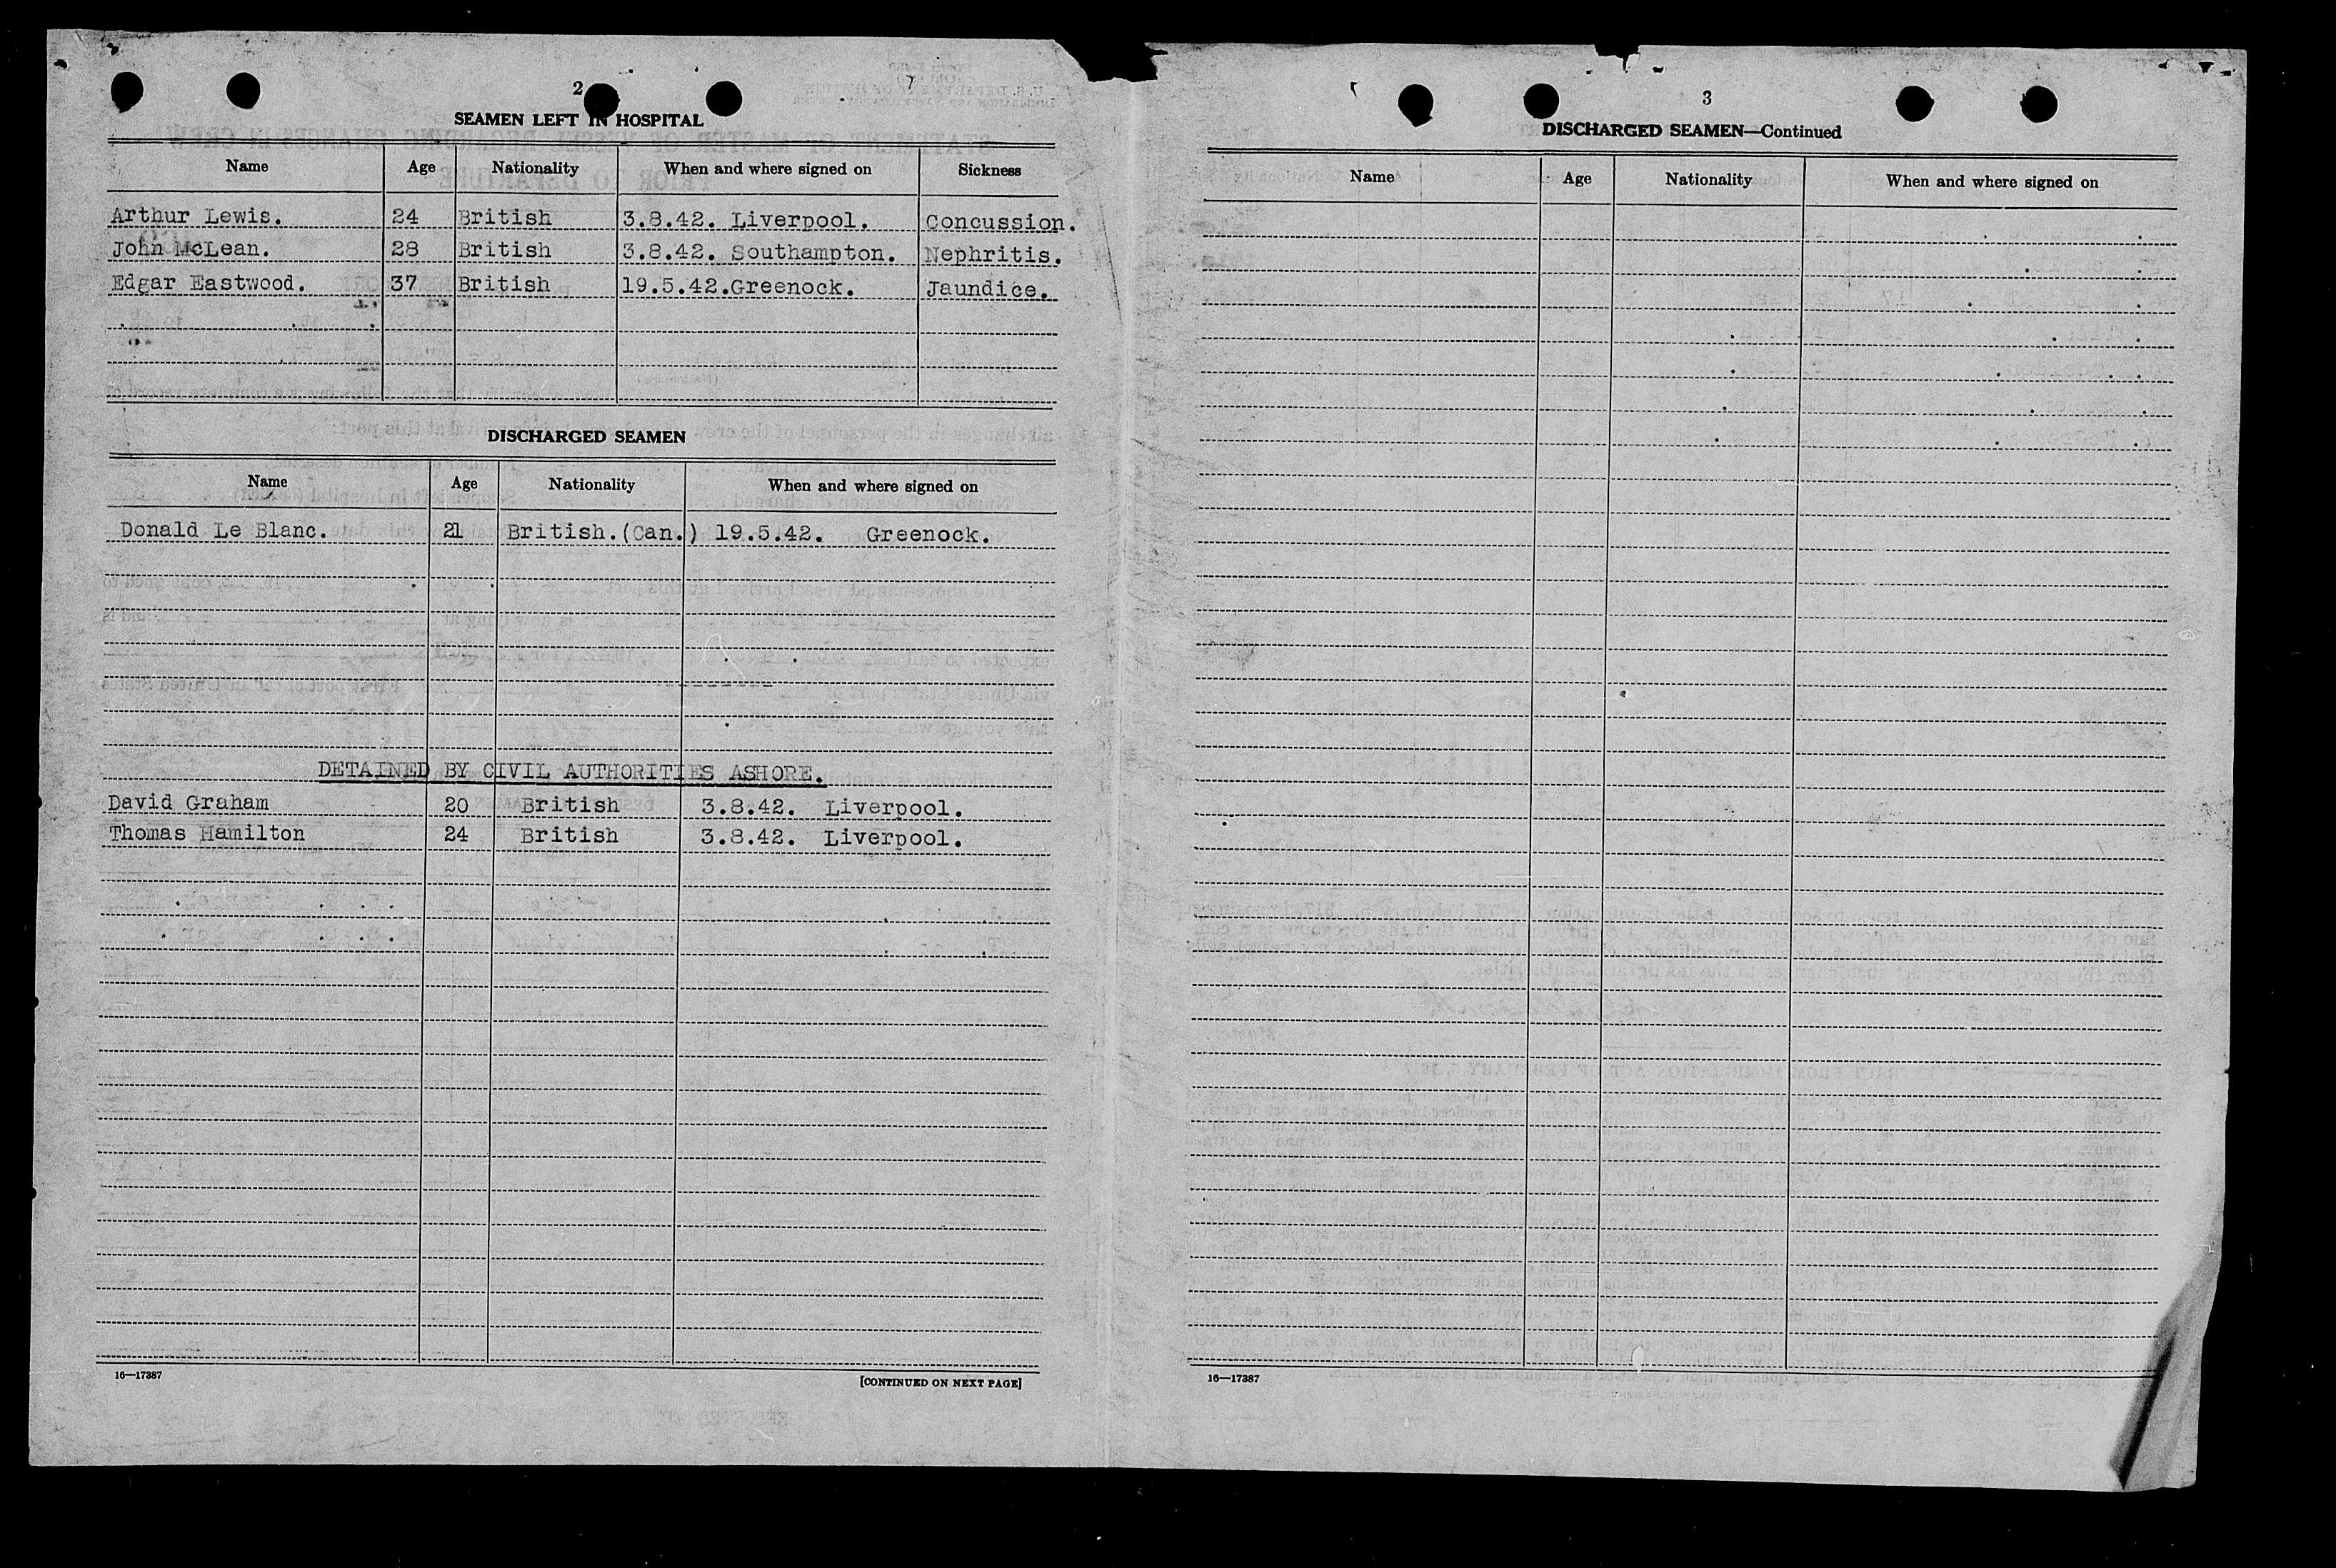 2
SEAMEN LEFT IN HOSPITAL
Name Age Nationality When and where signed on Sickness
Arthur Lewis. 24 British 3.8.42. Liverpool. Concussion.
John McLean. 28 British 3.8.42. Southampton. Nephritis.
Edgar Eastwood. 37 British 19.5.42.Greenock. Jaundice.
DISCHARGED SEAMEN
Name Age Nationality When and where signed on
Donald Le Blanc. 21 British.(Can.) 19.5.42. Greenock.
DETAINED BY CIVIL AUTHORITIES ASHORE.
David Graham 20 British 3.8.42. Liverpool.
Thomas Hamilton 24 British 3.8.42. Liverpool.
16—17387
[CONTINUED ON NEXT PAGE]
3
DISCHARGED SEAMEN—Continued
Name Age Nationality When and where signed on
16—17387